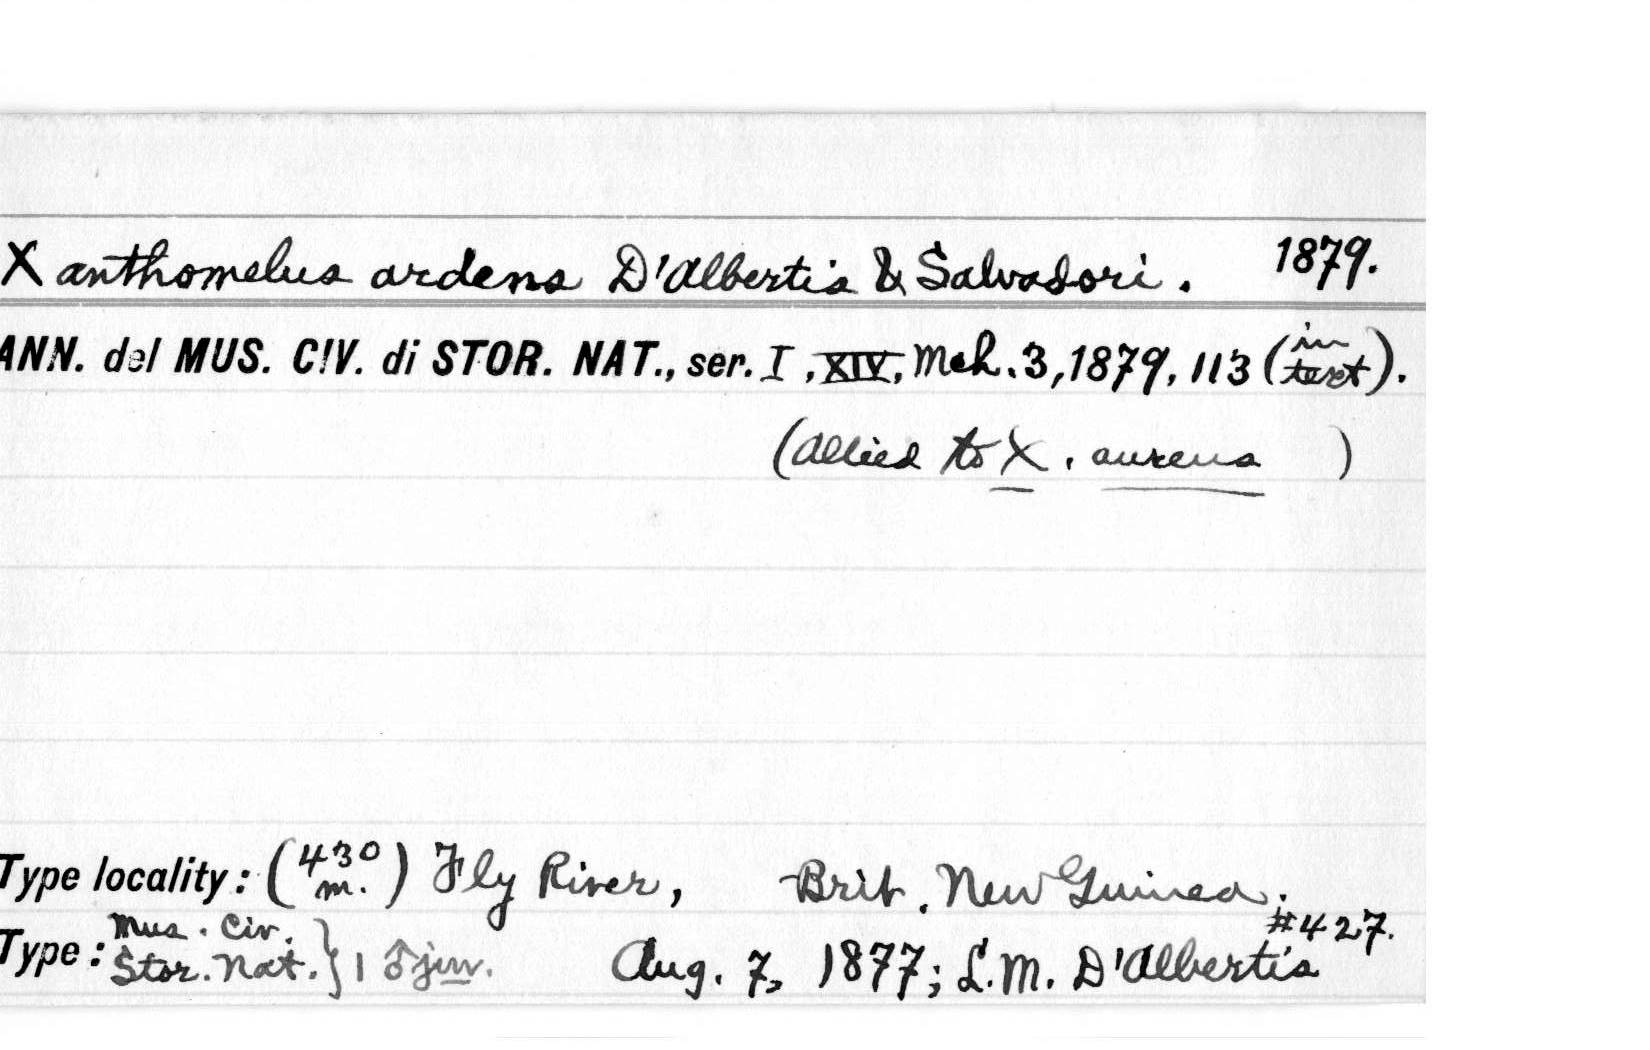 Xanthomelus ardens D'Albertis & Salvadori. 1879.
ANN. del MUS. CIV. di STOR. NAT., ser. I, XIV, Mch. 3, 1879, 113 (in text).
(Allied to X. aureus )
Type locality: (430 m.) Fly River, Brit. New Guinea.
#427.
Type: Mus. Civ. Stor. Nat.} 1 ♂ juv. Aug. 7, 1877; L.M. D'Albertis